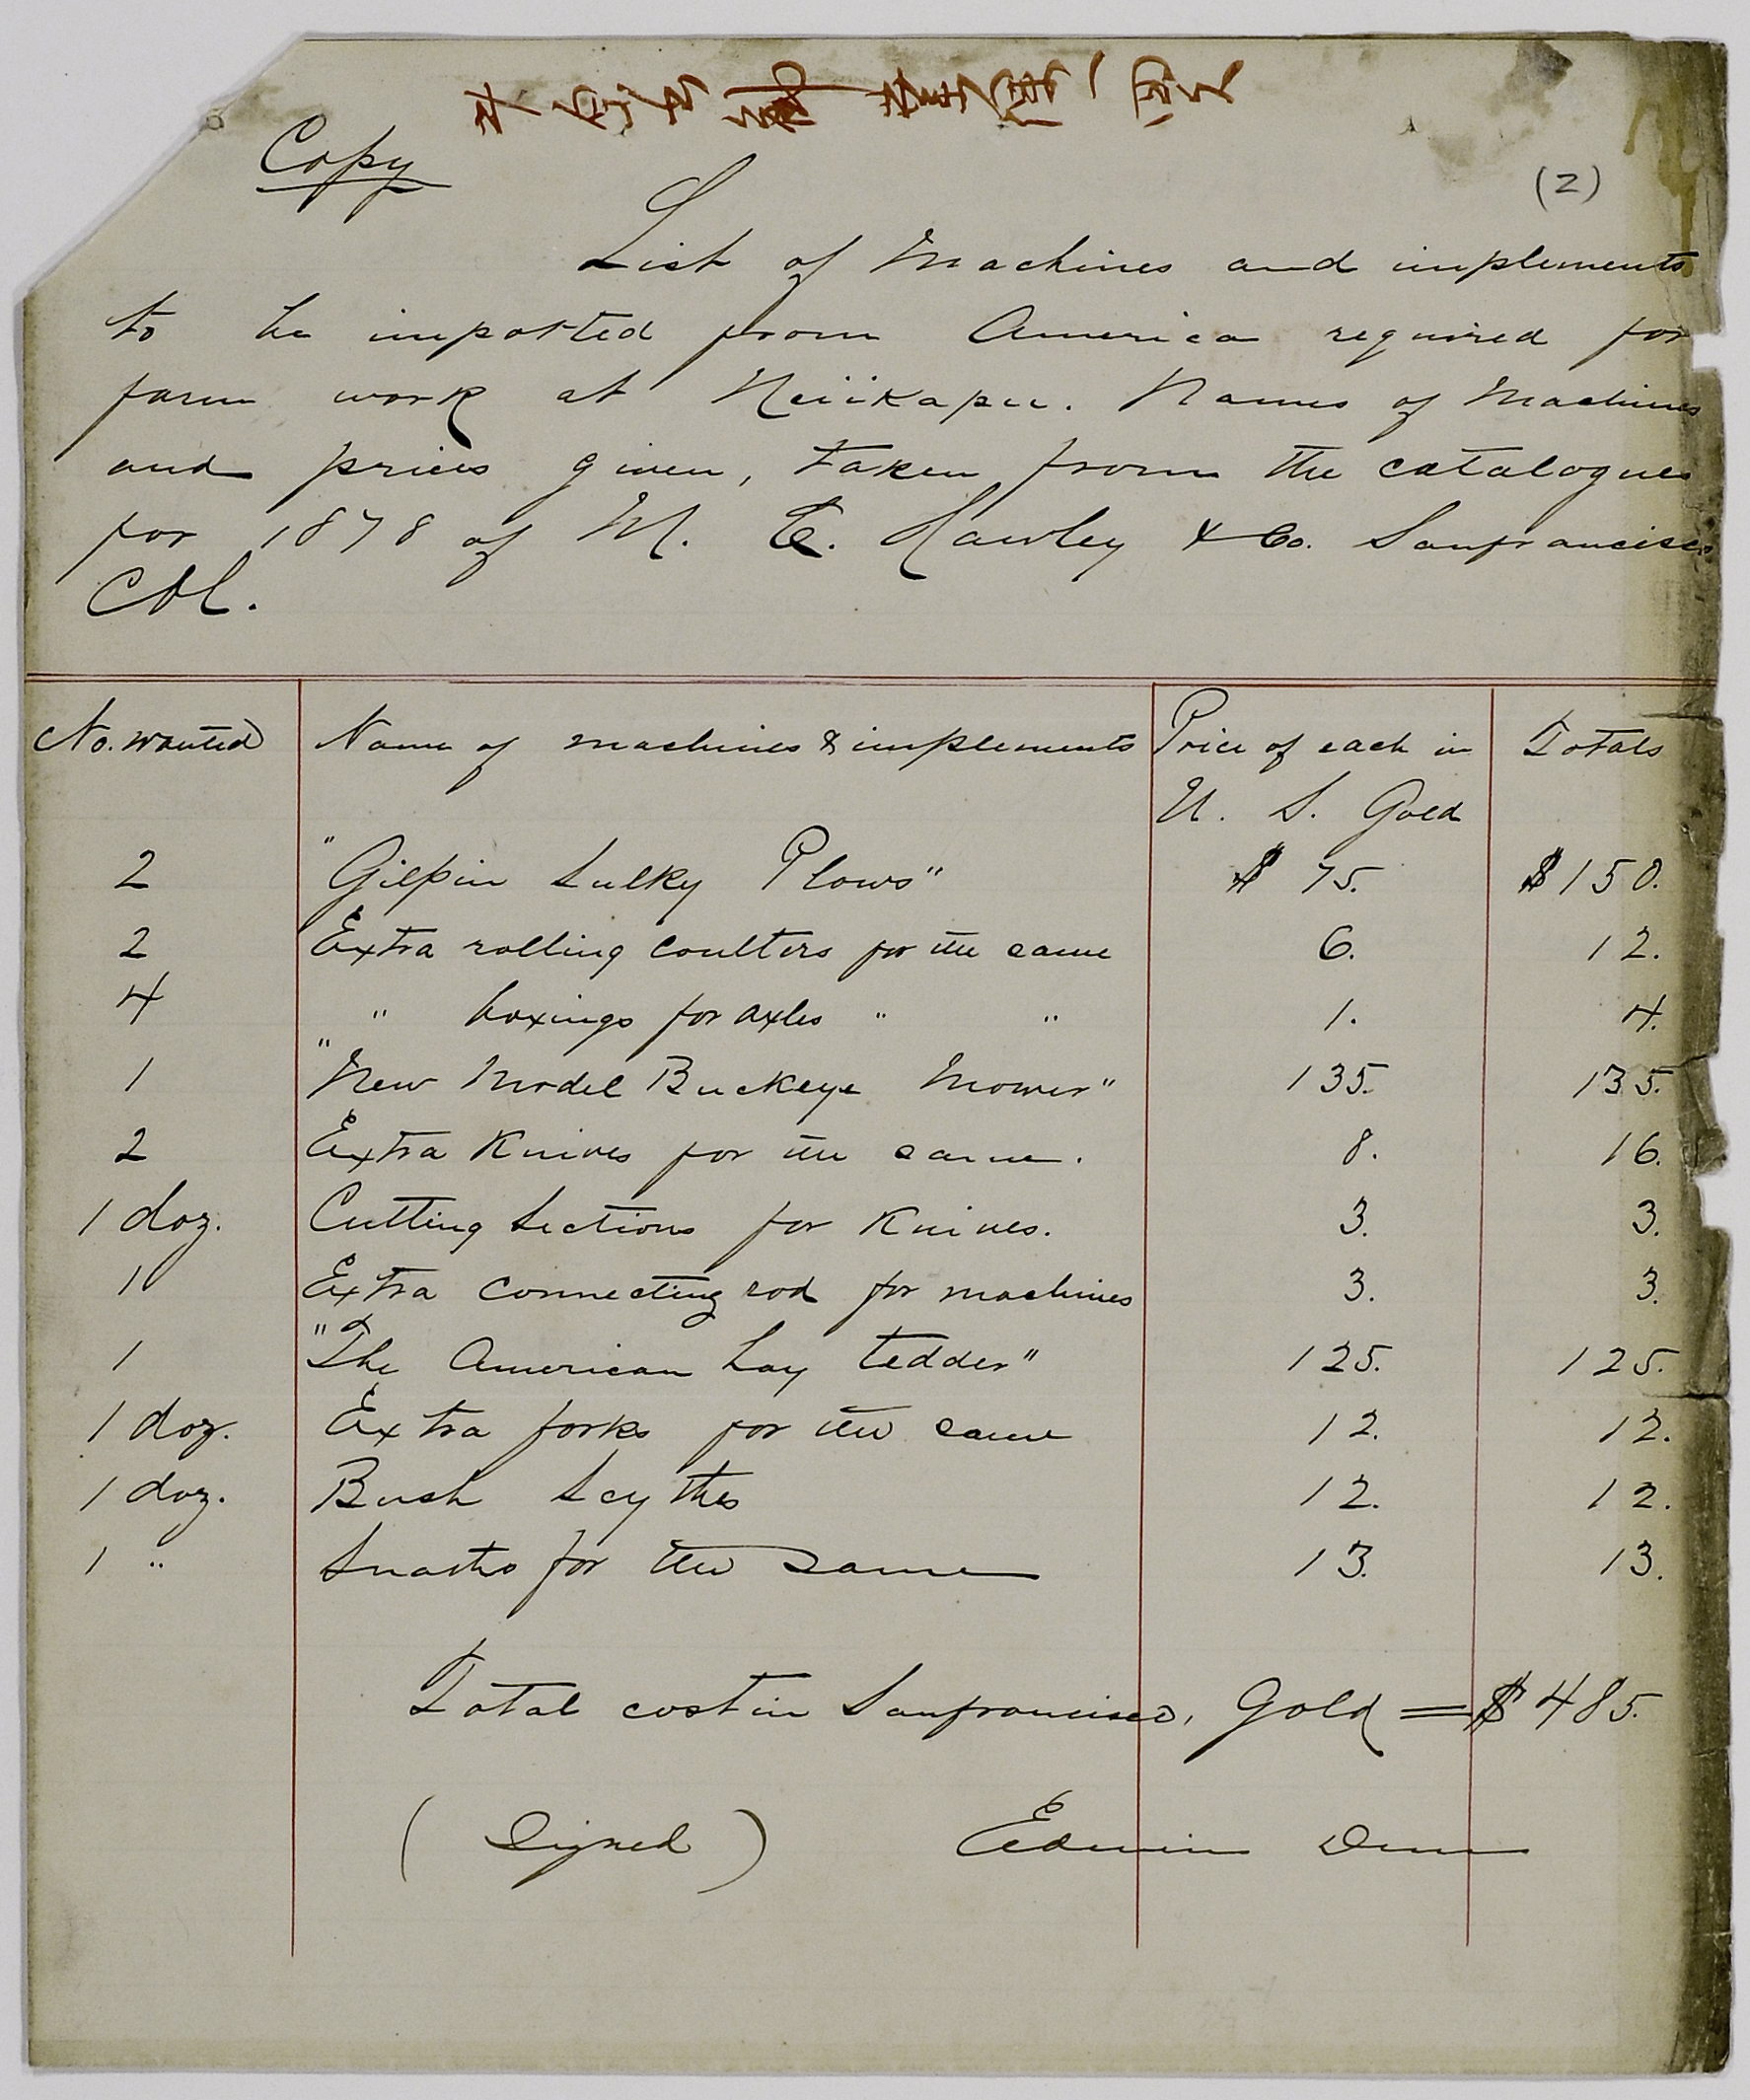 Copy
(2)
List of Machines and implements
to be imported from America required for
farm work at Neiikapu. Names of Machines
and prices given, taken from the catalogues
for 1878 of M. C. Hawley & Co. Sanfrancisco
Cal.
No. wanted Name of machines & implements Price of each in Totals
U. S. Gold
2 "Gilpin Sulky Plows" $ 75. $150.
2 Extra rolling Coulters for the same 6. 12.
4 " boxings for axles " " 1. 4.
1 "New Model Buckeye Mower" 135. 135.
2 Extra Knives for the same. 8. 16.
1 doz. Cutting Sections for Knives. 3. 3.
1 Extra connecting rod for machines 3. 3.
1 "The American hay tedder" 125. 125.
1 doz. Extra forks for the same 12. 12.
1 doz. Bush Scythes 12. 12.
1 " Snaths for the same 13. 13.
Total cost in Sanfrancisco, Gold = $485.
(Signed) Edwin Dun